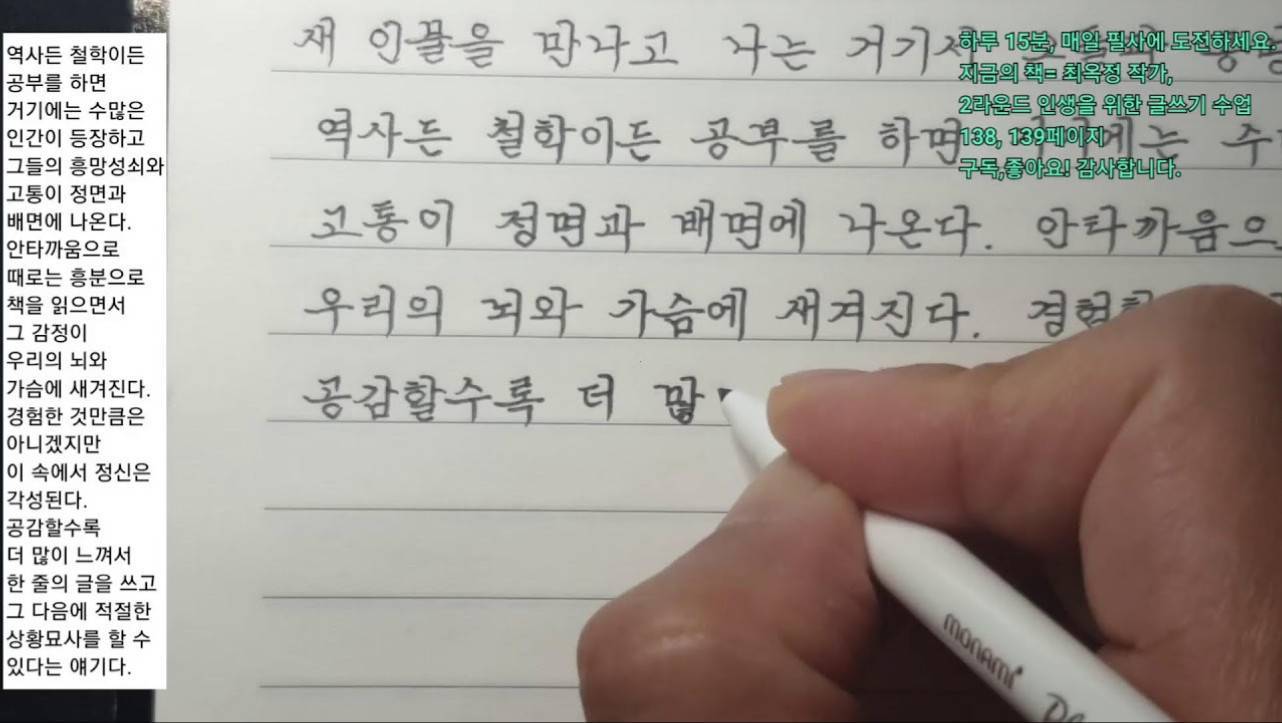 역사든 철학이든
공부를 하면
거기에는 수많은
인간이 등장하고
그들의 흥망성쇠와
고통이 정면과
배면에 나온다.
안타까움으로
때로는 흥분으로
책을 읽으면서
그 감정이
우리의 뇌와
가슴에 새겨진다.
경험한 것만큼은
아니겠지만
이 속에서 정신은
각성된다.
공감할수록
더 많이 느껴서
한 줄의 글을 쓰고
그 다음에 적절한
상황묘사를 할 수
있다는 얘기다.
하루 15분, 매일 필사에 도전하세요.
지금의 책= 최옥정 작가,
2라운드 인생을 위한 글쓰기 수업
138, 139페이지
구독,좋아요! 감사합니다.
재 인물을 만나고 나는 거기
역사든 철학이든 공부를 하면 에는 수
고통이 정면과 배면에 나온다. 안타까움으
우리의 뇌와 가슴에 새겨진다. 경험한
공감할수록 더 많
monami